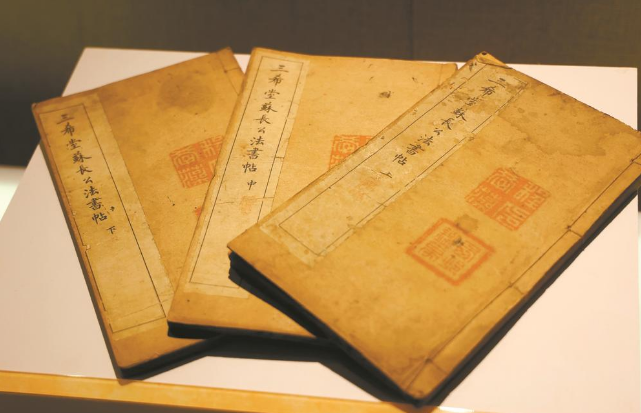 三希堂蘇長公法書帖 下
三希堂蘇長公法書帖 中
三希堂蘇長公法書帖 上